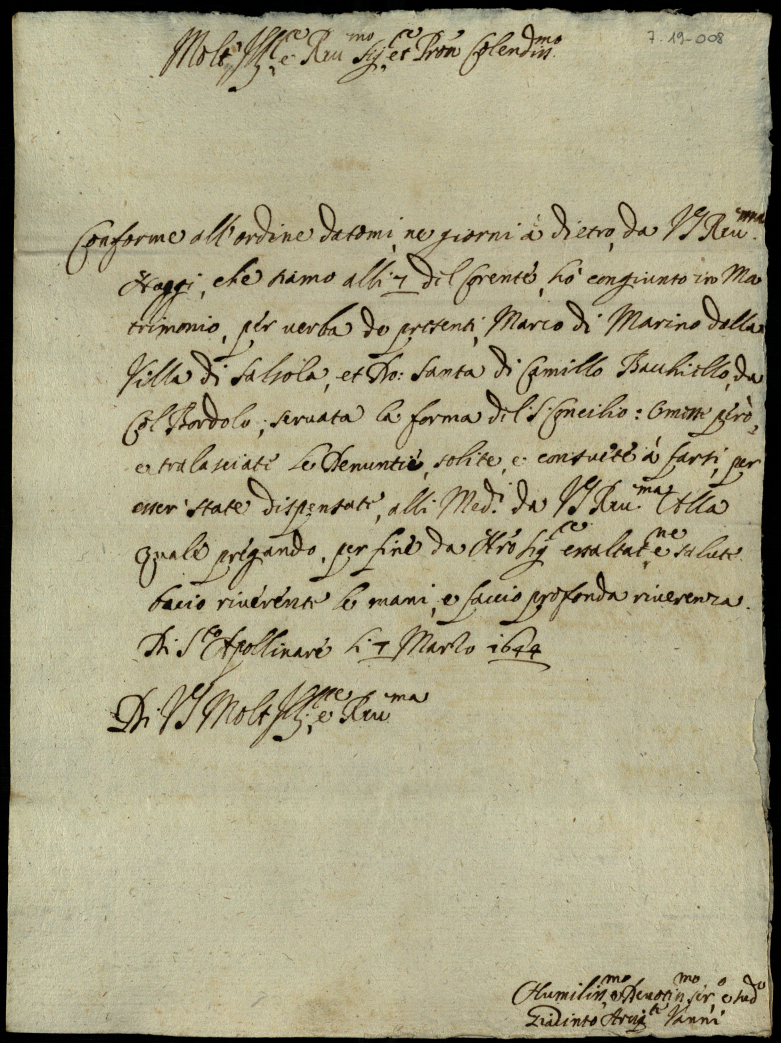 7-19-008
Molt Ill.re e Reu.mo Sig.re et Pron Colendiss.mo
Conforme all'ordine datomi, ne giorni à dietro, da VS Reu.ma
Hoggi, che siamo alli 7 del Corente, hò congiunto in Ma
trimonio, per uerba de presenti, Marco di Marino dalla
Villa di Salsola, et Do: Santa di Camillo Bacchiello, da
Col Bordolo; seruata la forma del S. Concilio: Omesse però,
e tralasciate le Denuntie, solite, e consuete à farsi, per
esser state dispensate, alli Med.i da VS Reu.ma Alla
quale pregando, per fine da Nro Sig.re essaltat.ne e salute
bacio riuerente le mani, e faccio profonda riuerenza.
Di S.to Apollinare li 7 Marzo 1644
Di VS Molt Ill.re e Reu.ma
Humiliss.mo e Deuotiss.mo ser.o
Giacinto Vanni